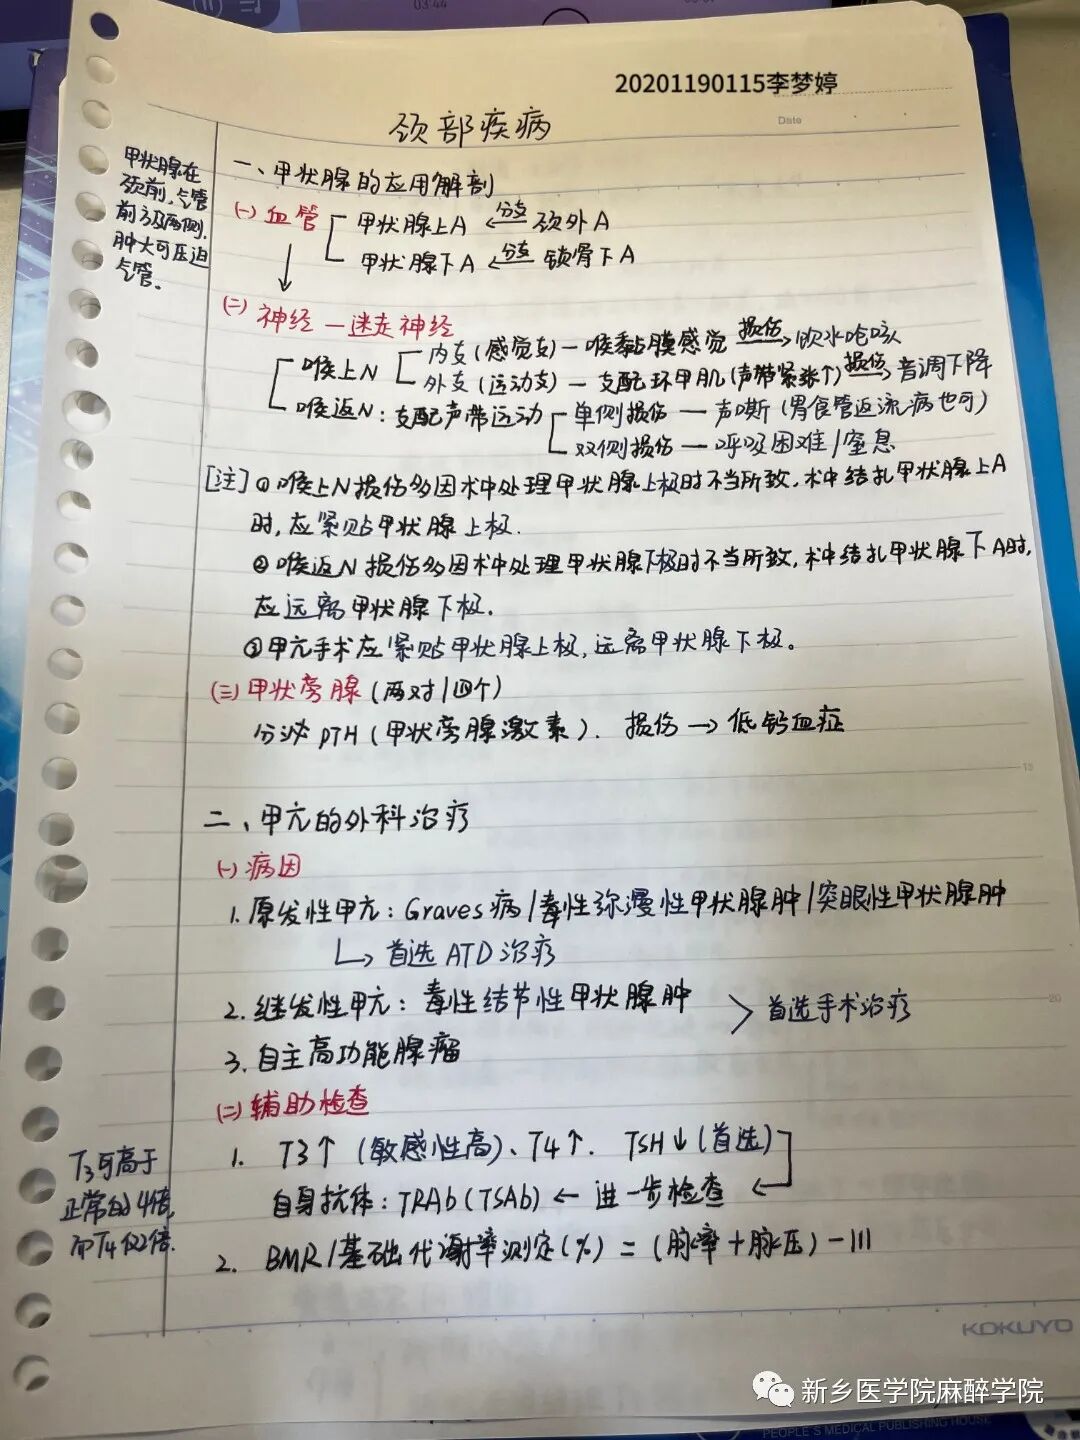 03:44
20201190115李梦婷
Date
颈部疾病
甲状腺在
颈前，气管
前方及两侧，
肿大可压迫
气管。
一、甲状腺的应用解剖
(一) 血管 甲状腺上A ←分支 颈外A
甲状腺下A ←分支 锁骨下A
↓
(二) 神经 — 迷走神经
喉上N 内支(感觉支) — 喉黏膜感觉 损伤→ 饮水呛咳
外支(运动支) — 支配环甲肌(声带紧张↑) 损伤→ 音调下降
喉返N：支配声带运动 单侧损伤 — 声嘶(胃食管返流病也可)
双侧损伤 — 呼吸困难/窒息
[注] ① 喉上N损伤多因术中处理甲状腺上极时不当所致，术中结扎甲状腺上A
时，应紧贴甲状腺上极.
② 喉返N损伤多因术中处理甲状腺下极时不当所致，术中结扎甲状腺下A时，
应远离甲状腺下极.
③甲亢手术应紧贴甲状腺上极，远离甲状腺下极。
(三) 甲状旁腺(两对/四个)
分泌PTH(甲状旁腺激素). 损伤→低钙血症
15
二、甲亢的外科治疗
(一) 病因
1. 原发性甲亢：Graves病/毒性弥漫性甲状腺肿/突眼性甲状腺肿
↳ 首选ATD治疗
2. 继发性甲亢：毒性结节性甲状腺肿
> 首选手术治疗
20
3. 自主高功能腺瘤
(二) 辅助检查
1. T3↑(敏感性高)、T4↑. TSH↓(首选)
自身抗体：TRAb(TSAb) ← 进一步检查 ←
T3可高于
正常的4倍，
而T4仅2倍.
2. BMR/基础代谢率测定(%) = (脉率+脉压) - 111
KOKUYO
新乡医学院麻醉学院
PEOPLE'S MEDICAL PUBLISHING HOUSE